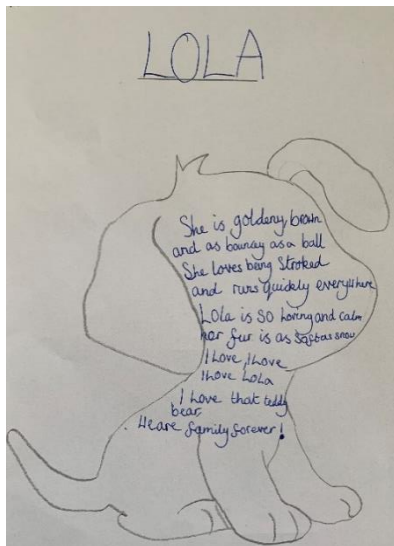 LOLA
She is goldeny brown
and as bouncy as a ball
She loves being stroked
and runs quickly everywhere
Lola is so loving and calm
her fur is as soft as snow
I love, I love
I love Lola
I love that teddy
bear
We are family forever!